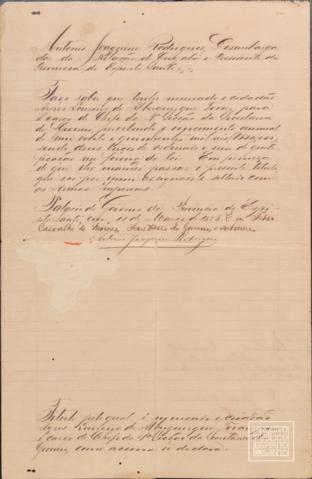 Antonio Joaquim Rodrigues, Desembarga
dor da Relação de e Presidente da
Provincia do Espirito Santo,
Faço saber que tenho nomeado o cidadão
Ayres Loureiro de Albuquerque Tovar, para
o cargo de Chefe da 1ª Secção da Secretaria
do Governo, percebendo o vencimento annual
de um conto e quinhentos mil reis
sendo dous terços de ordenado e um de grati
ficação na forma da lei. Em firmeza
do que lhe mandei passar o presente titulo
que vai por mim assignado e sellado com
as Armas Imperiaes.
Palacio do Governo da Provincia do Espi
rito Santo, em 11 de Março de
Carvalho de Secretario do Governo, o subscrevi.
Antonio Joaquim Rodrigues
Titulo pelo qual é nomeado o cidadão
Ayres Loureiro de Albuquerque Tovar para
o cargo de Chefe da 1ª Secção da Secretaria do
Governo, como acima se declara.
ARQUIVO
PÚBLICO
ESPÍRITO
SANTO